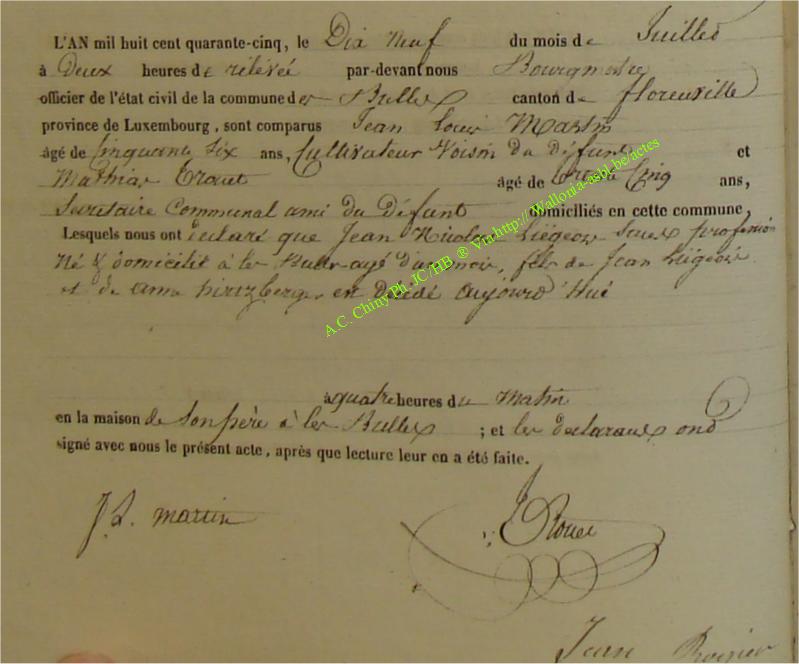 L'AN mil huit cent quarante-cinq, le Dix Neuf du mois de Juillet
à Deux heures de relevée par-devant nous Bourgmestre
officier de l'état civil de la commune des Bulles canton de florenville
province de Luxembourg, sont comparus Jean Louis Martin
âgé de Cinquante Six ans, Cultivateur Voisin du défunt et
Mathias âgé de Cinq ans,
Secretaire Communal ami du Défunt domiciliés en cette commune
Lesquels nous ont declaré que Jean Nicolas Liégeois sans profession
Né & domicilié à les Bulles agé d'un mois, fils de Jean Liégeois
et de anne est decédé aujourd'hui
à quatre heures du Matin
en la maison de Son père à les Bulles ; et les declarans ond
signé avec nous le présent acte, après que lecture leur en a été faite.
J. L. martin
Jean
A.C. Chiny Ph. JC/HB ® Via http://Wallonia-asbl.be/actes